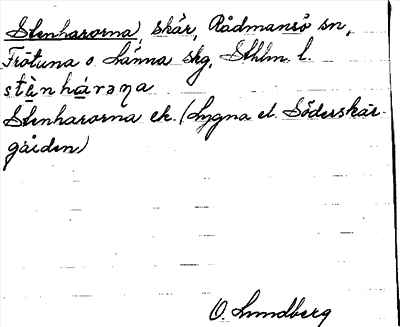 Stenharorna skär, Rådmansö sn,
Frötuna o. Länna skg, Sthlm. l.
stènhárəɳa
Stenharorna ek. (Lygna el. Söderskär-
gården)
O. Lundberg